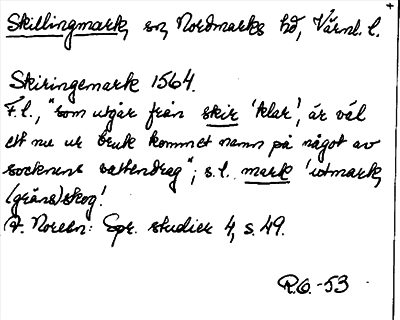 Skillingmark, sn, Nordmarks hd, Värml. l.
Skiringemark 1564.
F.l., "som utgår från skir 'klar', är väl
ett nu ur bruk kommet namn på något av
socknens vattendrag"; s.l. mark 'utmark,
(gräns)skog'.
A. Noreen: Spr. studier 4, s. 49.
R.O. -53